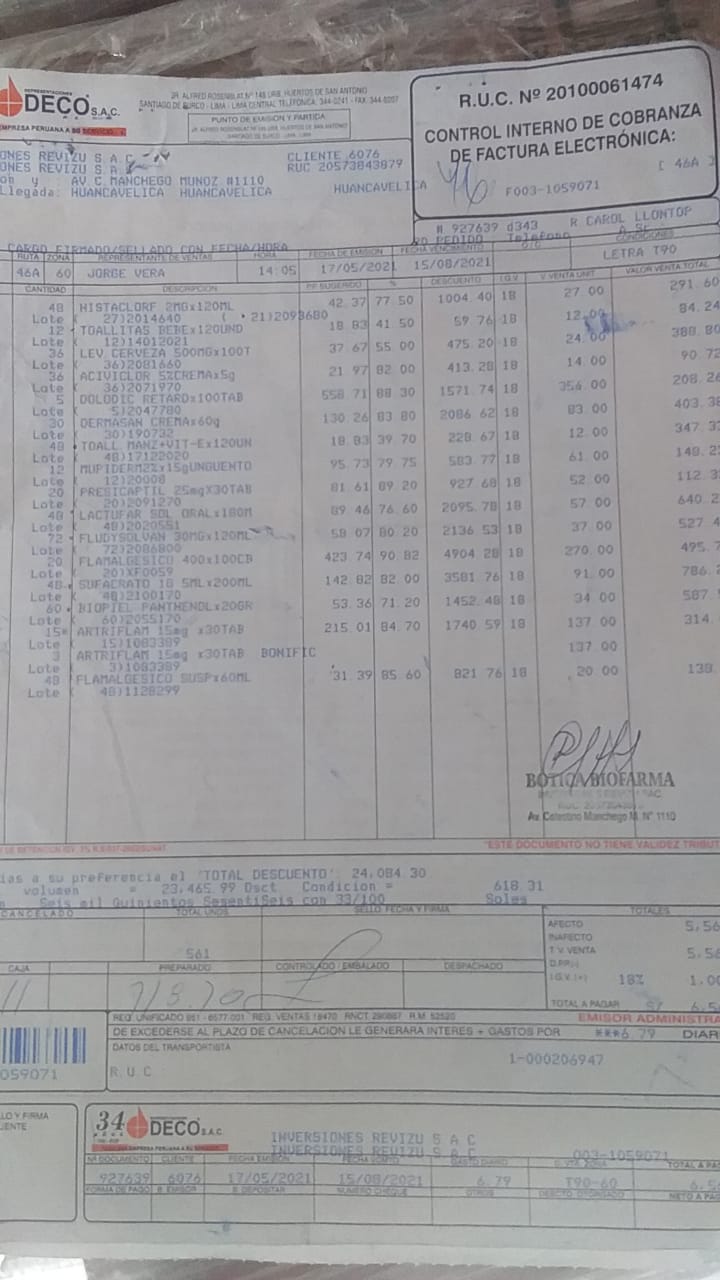 REPRESENTACIONES
DECO S.A.C.
EMPRESA PERUANA A SU SERVICIO
JR. ALFRED ROSENBLAT Nº 145 URB. HUERTOS DE SAN ANTONIO
SANTIAGO DE SURCO - LIMA - LIMA CENTRAL TELEFONICA: 344-0241 - FAX: 344-
PUNTO DE EMISIÓN Y PARTIDA
R.U.C. Nº 20100061474
CONTROL INTERNO DE COBRANZA
DE FACTURA ELECTRÓNICA:
F003-1059071
[ 46A ]
ONES REVIZU S A C
ONES REVIZU S A
CLIENTE 6076
RUC 20573843879
on y : AV C MANCHEGO MUNOZ #1110
Llegada: HUANCAVELICA HUANCAVELICA HUANCAVELICA
# 927639 d343 R CAROL LLONTOP
CARGO FIRMADO/SELLADO CON FECHA/HORA
Nº PEDIDO Telefono
RUTA ZONA REPRESENTANTE DE VENTAS HORA FECHA DE EMISION FECHA VENCIMIENTO CONDICIONES
46A 60 JORGE VERA 14:05 17/05/2021 15/08/2021 LETRA T90
CANTIDAD DESCRIPCION P.P. SUGERIDO % DESCUENTO I.G.V. V. VENTA UNIT. VALOR VENTA TOTAL
48 HISTACLORF 2MGx120ML 42.37 77.50 1004.40 18 27.00 291.60
Lote ( 27)2014640 ( 21)2093680
12 TOALLITAS BEBEx120UND 18.83 41.50 59.76 18 12.00 84.24
Lote ( 12)14012021
36 LEV.CERVEZA 500MGx100T 37.67 55.00 475.20 18 24.00 388.80
Lote ( 36)2081660
36 ACIVICLOR 5%CREMAx5g 21.97 82.00 413.28 18 14.00 90.72
Lote ( 36)2071970
5 DOLODIC RETARDx100TAB 558.71 88.30 1571.74 18 356.00 208.26
Lote ( 5)2047780
30 DERMASAN CREMAx60g 130.26 83.80 2086.62 18 83.00 403.38
Lote ( 30)190732
48 TOALL.MANZ+VIT-Ex120UN 18.83 39.70 228.67 18 12.00 347.33
Lote ( 48)17122020
12 MUPIDERM2%x15gUNGUENTO 95.73 79.75 583.77 18 61.00 148.2
Lote ( 12)20008
20 PRESICAPTIL 25mgX30TAB 81.61 89.20 927.68 18 52.00 112.3
Lote ( 20)2091270
48 LACTUFAR SOL.ORALx180M 89.46 76.60 2095.78 18 57.00 640.2
Lote ( 48)2020551
72 FLUDYSOLVAN 30MGx120ML 58.07 80.20 2136.53 18 37.00 527.4
Lote ( 72)2086800
20 FLAMALGESICO 400x100CB 423.74 90.82 4904.28 18 270.00 495.7
Lote ( 20)XF0059
48 SUFACRATO 1G 5MLx200ML 142.82 82.00 3581.76 18 91.00 786.2
Lote ( 48)2100170
60 BIOPIEL PANTHENOLx20GR 53.36 71.20 1452.48 18 34.00 587.
Lote ( 60)2055170
15 ARTRIFLAM 15mg x30TAB 215.01 84.70 1740.59 18 137.00 314.
Lote ( 15)1083389
3 ARTRIFLAM 15mg x30TAB BONIFIC 137.00
Lote ( 3)1083389
48 FLAMALGESICO SUSPx60ML 31.39 85.60 821.76 18 20.00 138.
Lote ( 48)1128299
BOTICA BIOFARMA
Av. Celestino Manchego M. Nº 1110
"ESTE DOCUMENTO NO TIENE VALIDEZ TRIBUT
ias a su preferencia el 'TOTAL DESCUENTO' 24,084.30
volumen = 23,465.99 Dsct. Condicion = 618.31
n Seis mil Quinientos SesentiSeis con 33/100 Soles
CANCELADO TOTAL UNDS. SELLO, FECHA Y FIRMA TOTALES
561
AFECTO 5,56
INAFECTO
T.V. VENTA 5,56
D.PP.(-)
I.G.V. (+) 18% 1.00
TOTAL A PAGAR S/ 6,5
CAJA PREPARADO CONTROLADO / EMBALADO DESPACHADO
REG. UNIFICADO 861 - 6577-001. REG. VENTAS 18470 RNCT. 290867 R.M. 52520
EMISOR ADMINISTRA
DE EXCEDERSE AL PLAZO DE CANCELACION LE GENERARA INTERES + GASTOS POR ***6.79 DIAR
DATOS DEL TRANSPORTISTA
1-000206947
R.U.C.
059071
LO Y FIRMA
IENTE
34 DECO S.A.C.
INVERSIONES REVIZU S A C
INVERSIONES REVIZU S A C
003-1059071
Nº DOCUMENTO CLIENTE FECHA EMISION FECHA VCMTO. GASTO DIARIO TOTAL A PA
927639 6076 17/05/2021 15/08/2021 6.79 T90-60 6,56
FORMA DE PAGO B. EMISOR B. DEPOSITAR NUMERO CHEQUE OTROS DESCTO. OTORGADO NETO A PAG